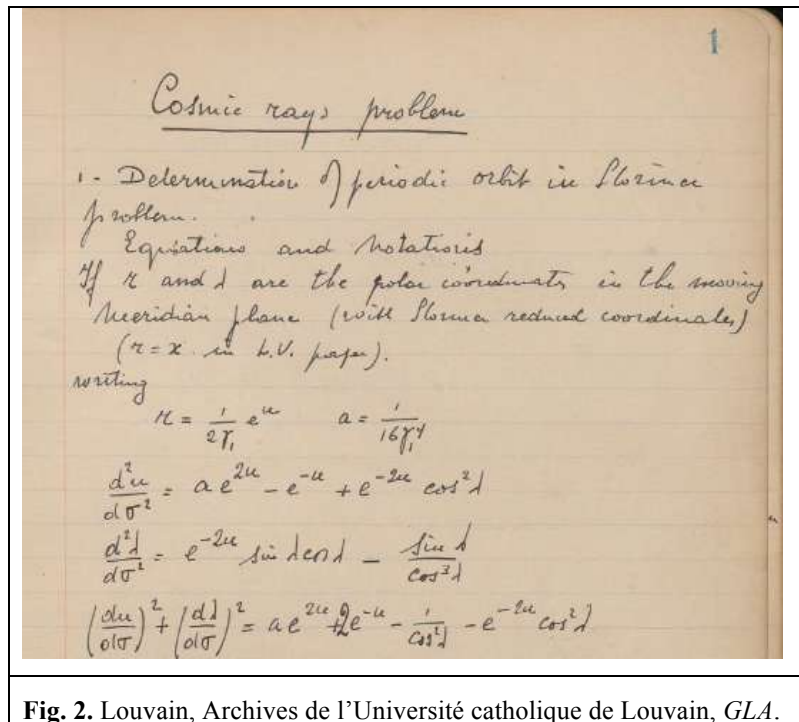 1
Cosmic rays problem
1 - Determination of periodic orbit in Störmer
problem.
Equations and Notations
If r and λ are the polar coordinates in the moving
meridian plane (with Störmer reduced coordinates)
(r = x in L.V. paper).
writing
r = 1/(2γ₁) e^u   a = 1/(16γ₁⁴)
d²u/dσ² = a e^{2u} - e^{-u} + e^{-2u} cos²λ
d²λ/dσ² = e^{-2u} sin λ cos λ - sin λ/cos³λ
(du/dσ)² + (dλ/dσ)² = a e^{2u} + 2e^{-u} - 1/cos²λ - e^{-2u} cos²λ
Fig. 2. Louvain, Archives de l'Université catholique de Louvain, GLA.